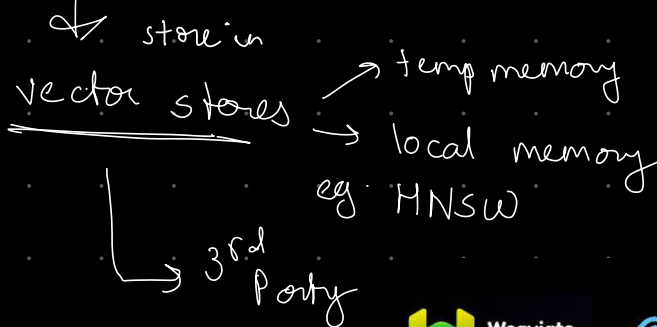 store in
vector stores
temp memory
local memory
eg. HNSW
3rd
Party